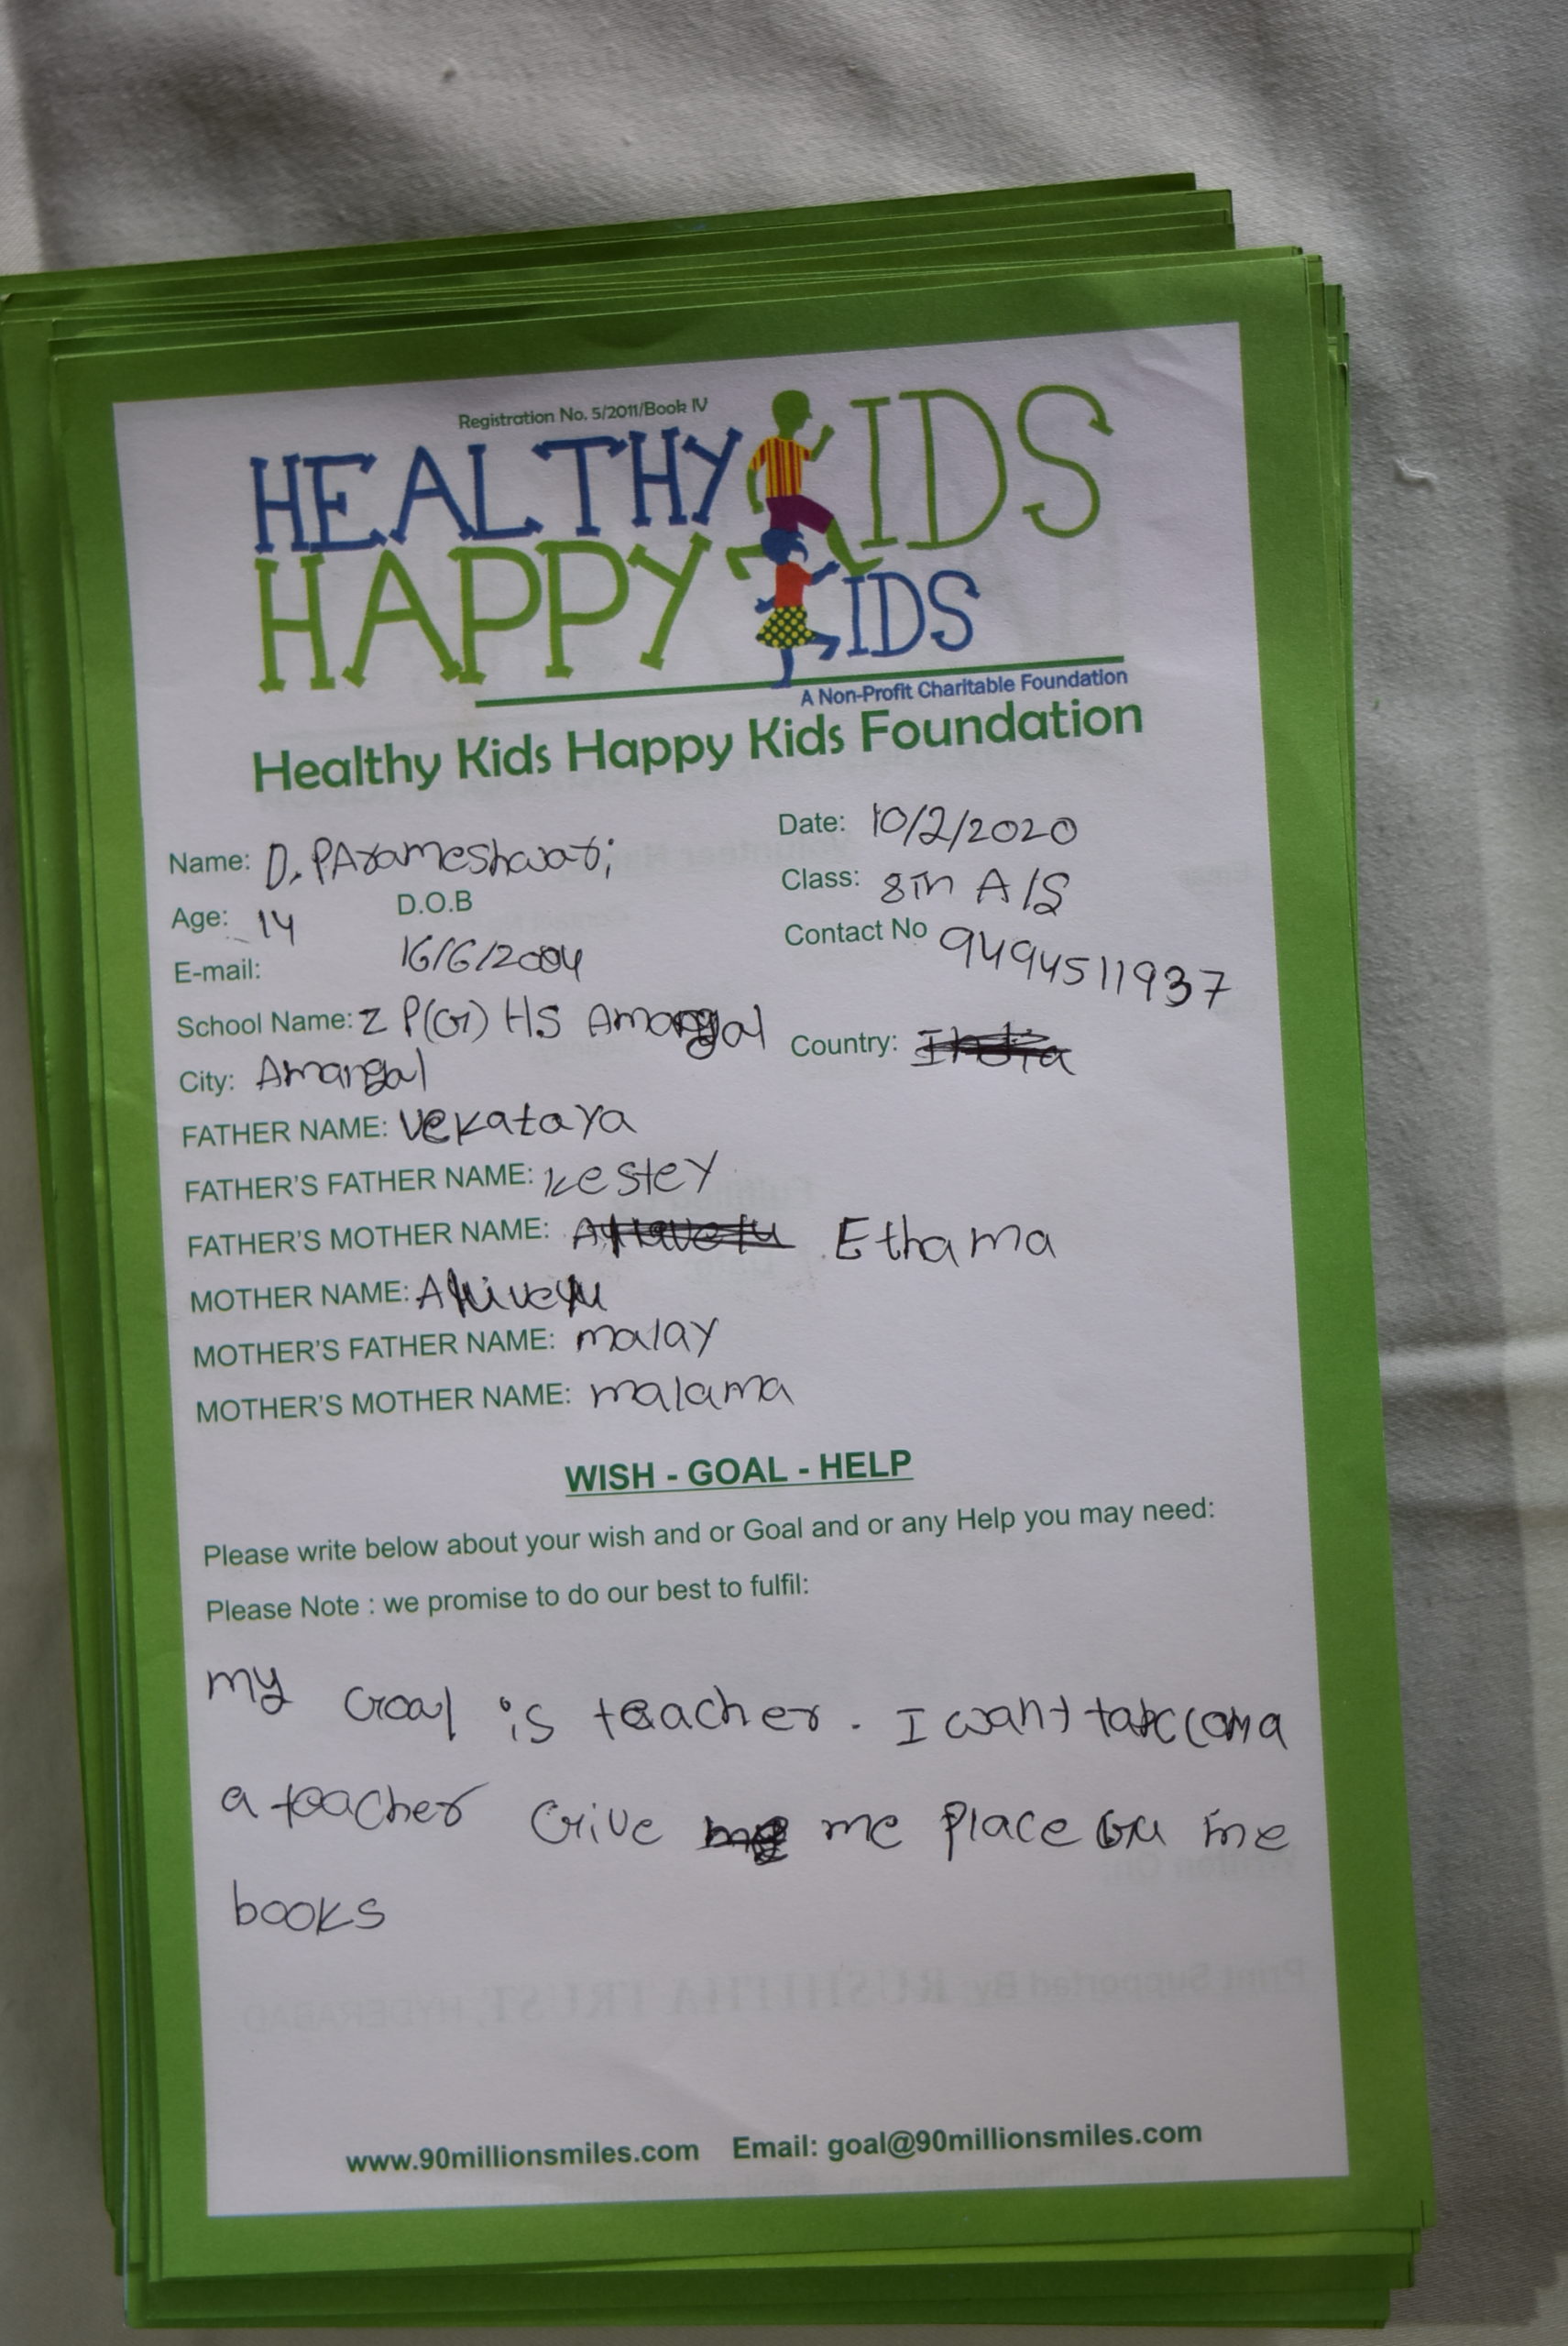 Registration No. 5/2011/Book IV
HEALTHY KIDS
HAPPY KIDS
A Non-Profit Charitable Foundation
Healthy Kids Happy Kids Foundation
Name: D. PArameshwari
Date: 10/2/2020
Age: 14
D.O.B
Class: 8th A/S
E-mail:
16/6/2004
Contact No 9494511937
School Name: Z P(G) HS Amangal
Country: India
City: Amangal
FATHER NAME: Vekataya
FATHER'S FATHER NAME: kestey
FATHER'S MOTHER NAME: Ethama
MOTHER NAME:
MOTHER'S FATHER NAME: malay
MOTHER'S MOTHER NAME: malama
WISH - GOAL - HELP
Please write below about your wish and or Goal and or any Help you may need:
Please Note : we promise to do our best to fulfil:
my Goal is teacher. I want
a teacher Give me place me
books
www.90millionsmiles.com Email: goal@90millionsmiles.com